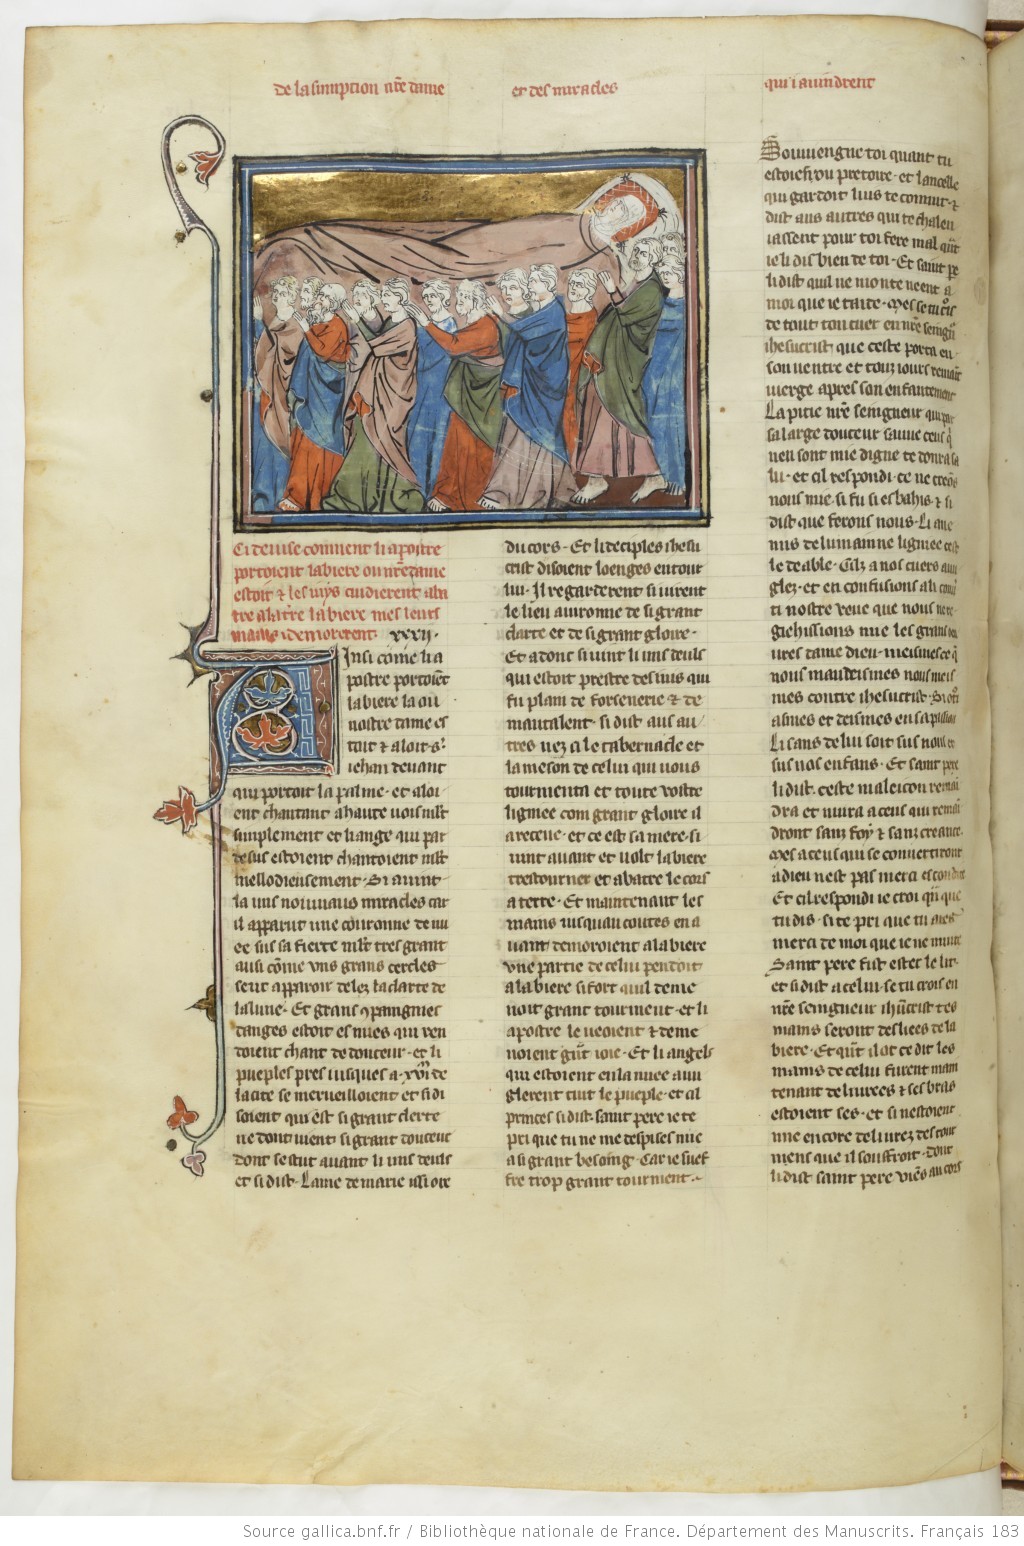 de lasumption nr̃e dame et des miracles qui i auindrent
Ci deuise comment li apostre
portoient la biere ou nr̃e dame
estoit ⁊ les iuys cuidierent aba
tre a la t̃re la biere mes leurs
mains i demorerent. xxxij.
Ainsi cõme li a
postre portoiẽt
la biere la ou
nostre dame es
toit ⁊ aloit .s̃.
iehan deuant
qui portoit la palme. et aloi
ent chantant a haute uois ml̃t
simplement et li ange qui par
desus estoient chantoient ml̃t
mellodieusement. Si auint
la uns nouuiaus miracles car
il apparut une couronne de nu
ee sus sa fierte ml̃t tres grant
ausi cõme vns grans cercles
seut apparoir delez la clarte de
la lune. Et grans ꝯpaingnies
danges estoit es nues qui ren
doient chant de douceur. et li
pueples pres iusques a .xvᵐ de
la cite se merueilloient et si di
soient qui est si grant clerte
ne dont uient si grant douceur
dont se stut auant li uns deuls
et si dist. Laine de marie issi ore
du cors. Et li deciples ihesu
crist disoient loenges entour
lui. Il regarderent si uirent
le lieu auironne de si grant
clarte et de si grant gloire.
Et adonc si uint li uns deuls
qui estoit prestre des iuis qui
fu plain de forsenerie ⁊ de
mautalent. si dist aus au
tres uez ci le tabernacle et
la meson de celui qui uous
tourmenta et toute vostre
lignee com grant gloire il
a receue. et ce est sa mere. si
uint auant et uolt la biere
trestourner et abatre le cors
a terre. Et maintenant les
mains iusquau coutes en a
uant demoroient a la biere
vne partie de celui pendoit
a la biere si fort quil deme
noit grant tourment. et li
apostre le ueoient ⁊ deme
noient gñt ioie. Et li angels
qui estoient en la nuee auu
glerent tout le pueple. et cil
princes si dist saint pere ie te
pri que tu ne me despises mie
a si grant besoing. Car ie suef
fre trop grant tourment.
Souuiengne toi quant tu
estoies ou pretoire. et lancelle
qui gardoit luis te connut. ⁊
dist aus autres qui te chalen
iassent pour toi fere mal q̃nt
ie li dis bien de toi. Et saint pe
li dist quil ne monte neent a
moi que ie traite. Mes se tu c̃rois
de tout ton cuer en nr̃e seign̄
ihesucrist que ceste porta en
son uentre et touz iours remãt
uierge apres son enfantement
La pitie nr̃e seingneur qui par
sa large douceur sauue ceus q̃
neu sont mie digne te donra sa
lu. et cil respondi. ce ne creõs
nous mie. si fu si esbahis. ⁊ si
dist que ferons nous. Li ane
mis de lumainne lignee cest
le deable. Cilz a nos cuers auu
glez. et en confusions
ti nostre veue que nous ne re
giehissions mie les grans
ures dame dieu. meismes ce q̃
nous maudeismes nous meis
mes contre ihesucrist. Si
asmes et deismes en sa passion
Li sans de lui soit sus nous et
sus nos enfans. Et saint pere
li dist. ceste maleicon remai
dra et nuira a ceus qui remai
dront sanz foy ⁊ sanz creance.
Mes a ceus qui se conuertiront
a dieu nest pas merci escondite
Et cil respondi ie croi q̃nque
tu dis. si te pri que tu aies
merci de moi que ie ne muire
Saint pere fist ester le lit.
et si dist a celui se tu crois en
nr̃e seingneur ih̃ucrist tes
mains seront desliees de la
biere. Et q̃nt il ot ce dit les
mains de celui furent main
tenant deliurees ⁊ ses bras
estoient ses. et si nestoient
mie encore deliurez des tour
mens que il souffroit. dont
li dist saint pere viẽs au cors
Source gallica.bnf.fr / Bibliothèque nationale de France. Département des Manuscrits. Français 183